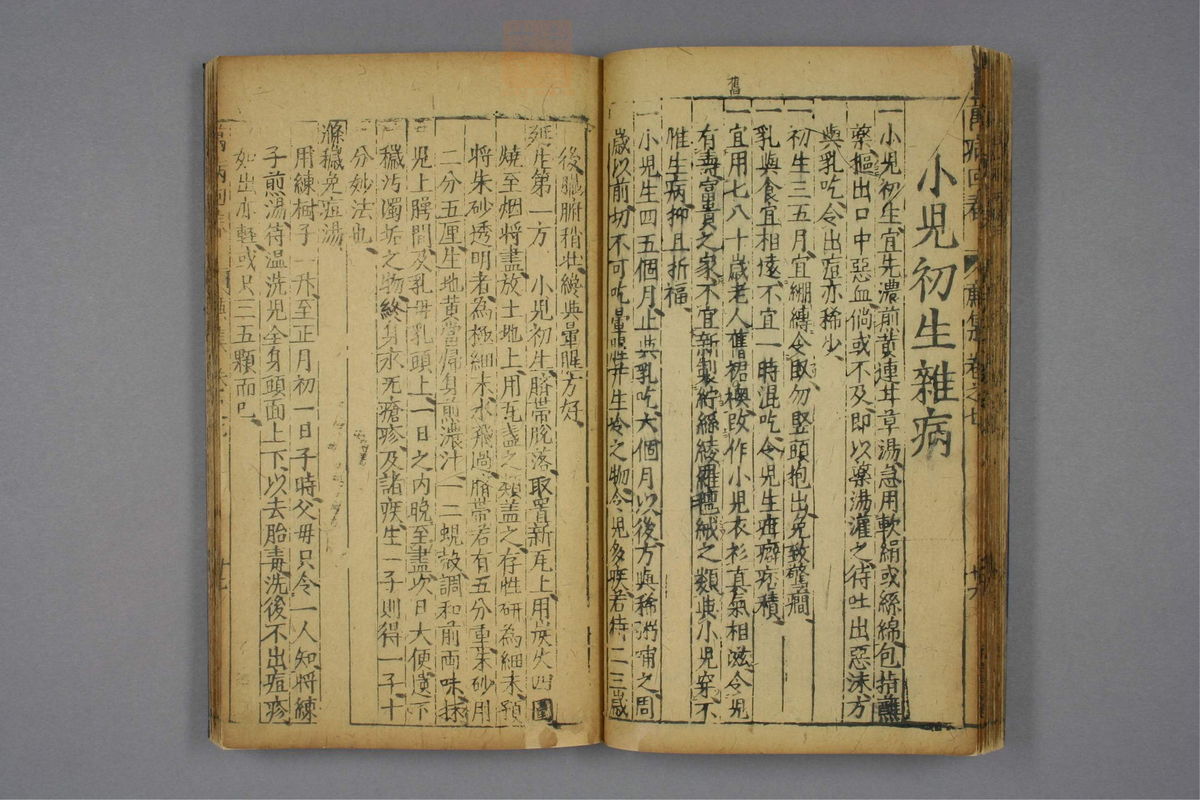 小兒初生雜病
一小兒初生宜先濃煎黄連甘草湯急用軟絹或絲綿包指蘸
藥摳出口中惡血倘或不及即以藥湯灌之待吐出惡沫方
與乳吃令出痘亦稀少
一初生三五月宜綳縳令臥勿竪頭抱出免致驚癇
一乳與食宜相逺不宜一時混吃令兒生疳癖痞積
一宜用七八十歲老人舊裙襖改作小兒衣衫真氣相滋令兒
有壽富貴之家不宜新製紵絲綾羅氊絨之類與小兒穿不
惟生病抑且折福
舊
一小兒生四五個月止與乳吃六個月以後方與稀粥哺之周
歲以前切不可吃葷腥并生冷之物令兒多疾若待二三歲
後臟腑稍壯纔與葷腥方好
延生第一方　小兒初生臍帶脫落取置新瓦上用炭火四圍
燒至烟將盡放土地上用瓦盞之類盖之存性研為細末預
將朱砂透明者為極細末水飛過臍帶若有五分重朱砂用
二分五厘生地黄當歸身煎濃汁一二蜆殼調和前兩味抹
兒上腭間及乳母乳頭上一日之内晚至盡次日大便遺下
穢汚濁垢之物終身永无瘡疹及諸疾生一子則得一子十
分妙法也
滌穢免痘湯
用練樹子一升至正月初一日子時父母只令一人知將練
子煎湯待温洗兒全身頭面上下以去胎毒洗後不出痘疹
如出亦輕或只三五顆而已